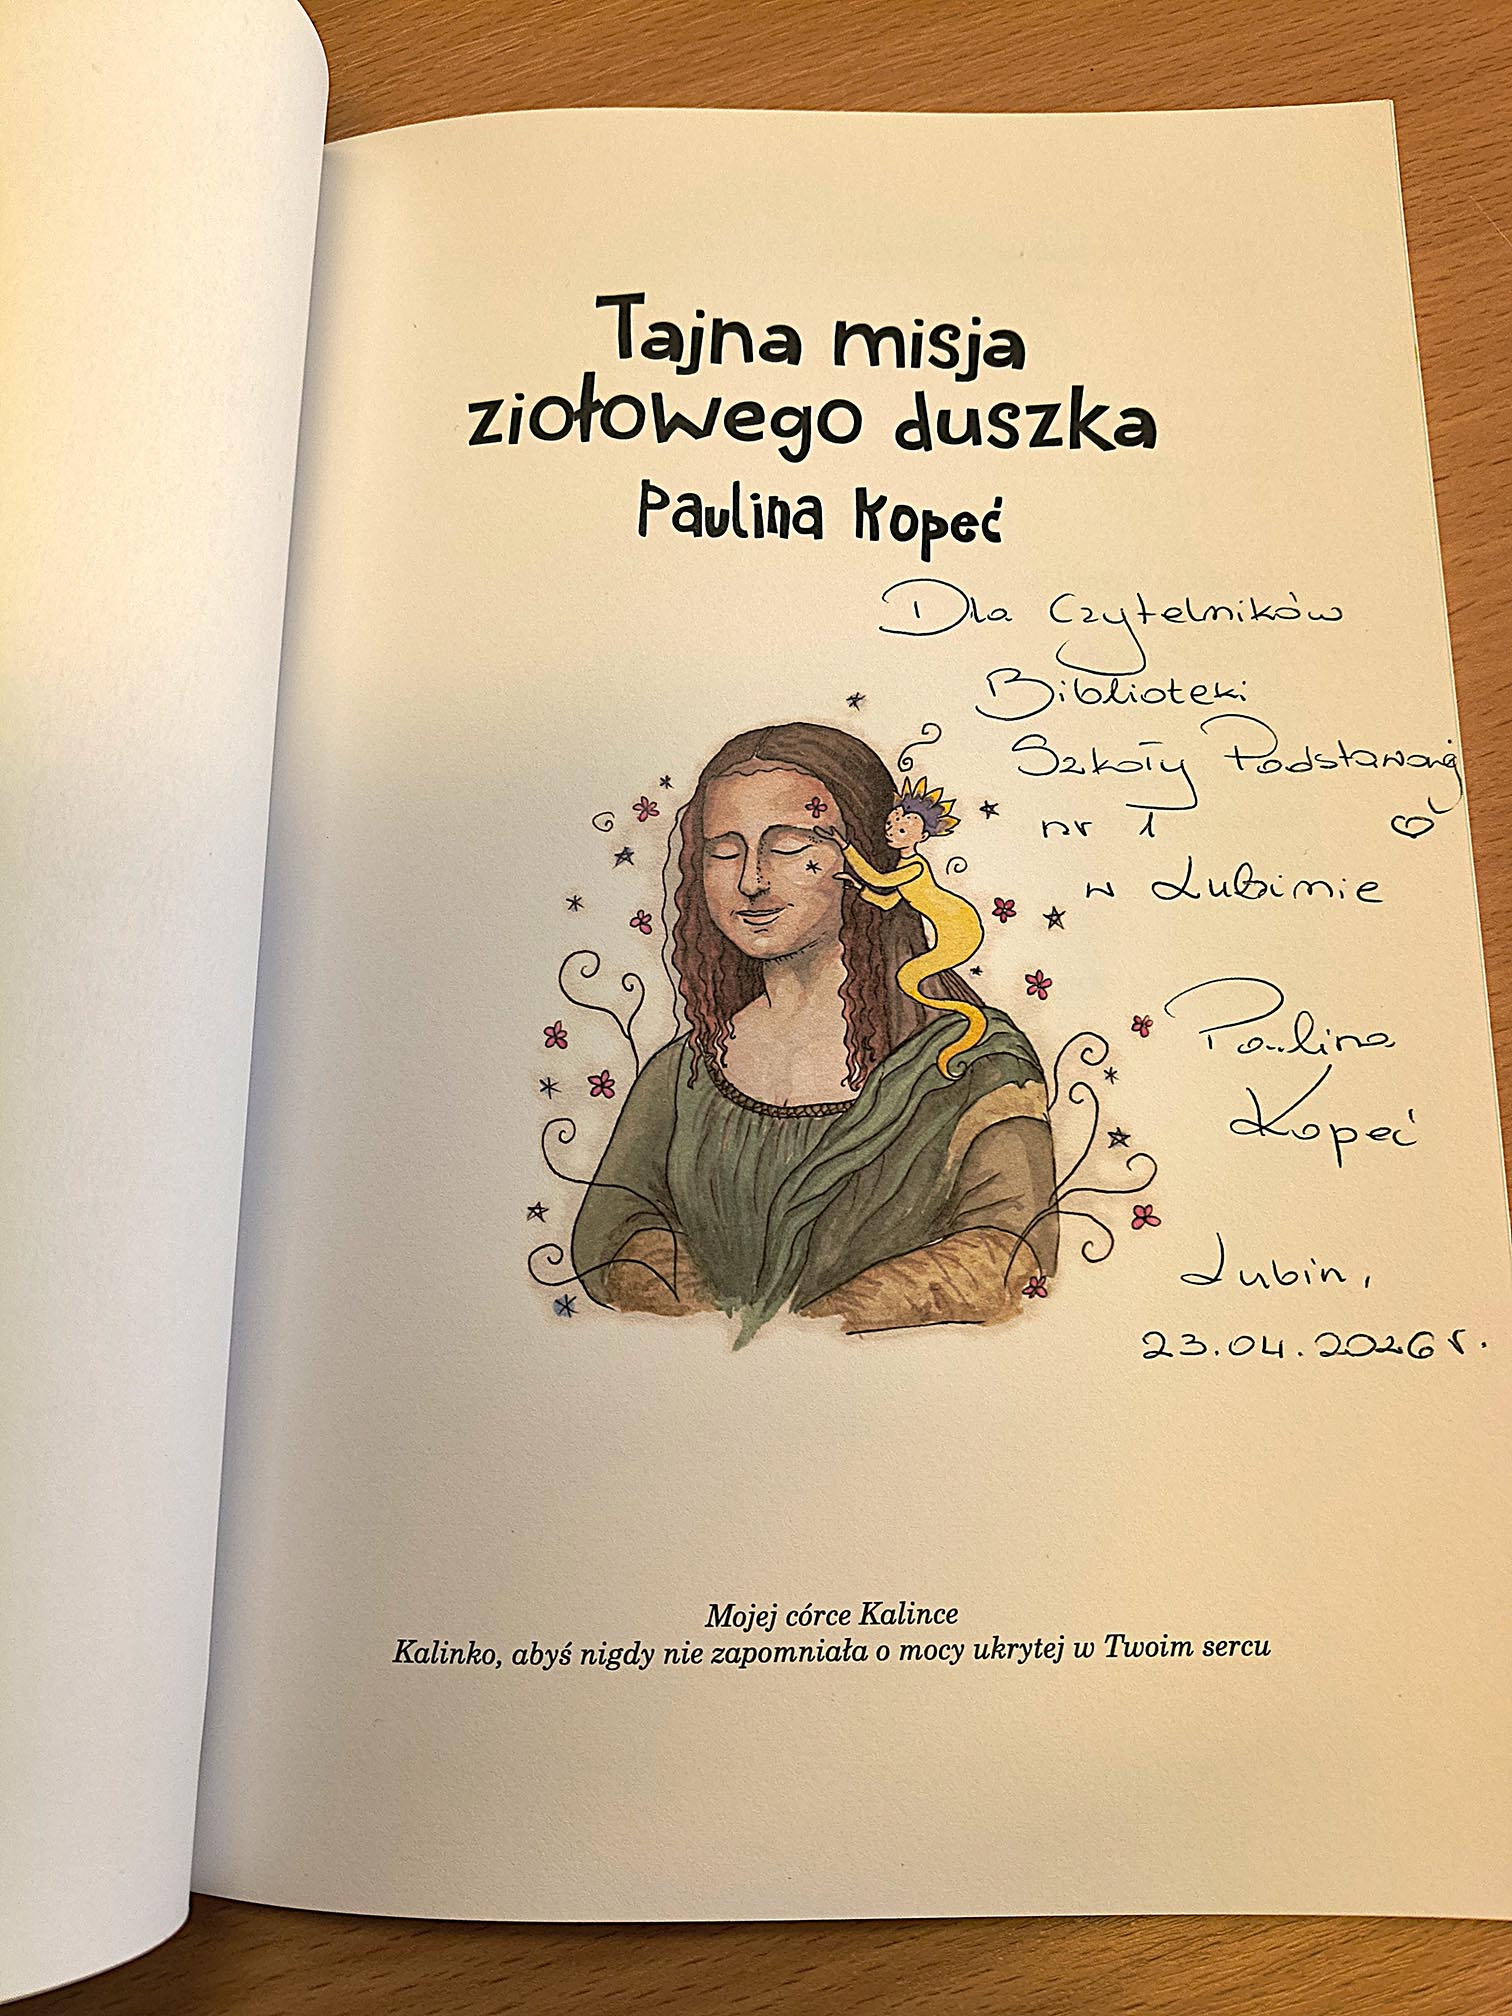 Tajna misja
ziołowego duszka
Paulina Kopeć
Dla Czytelników
Biblioteki
Szkoły Podstawowej
nr 1
w Lubinie
Paulina
Kopeć
Lubin,
23.04.2026 r.
Mojej córce Kalince
Kalinko, abyś nigdy nie zapomniała o mocy ukrytej w Twoim sercu